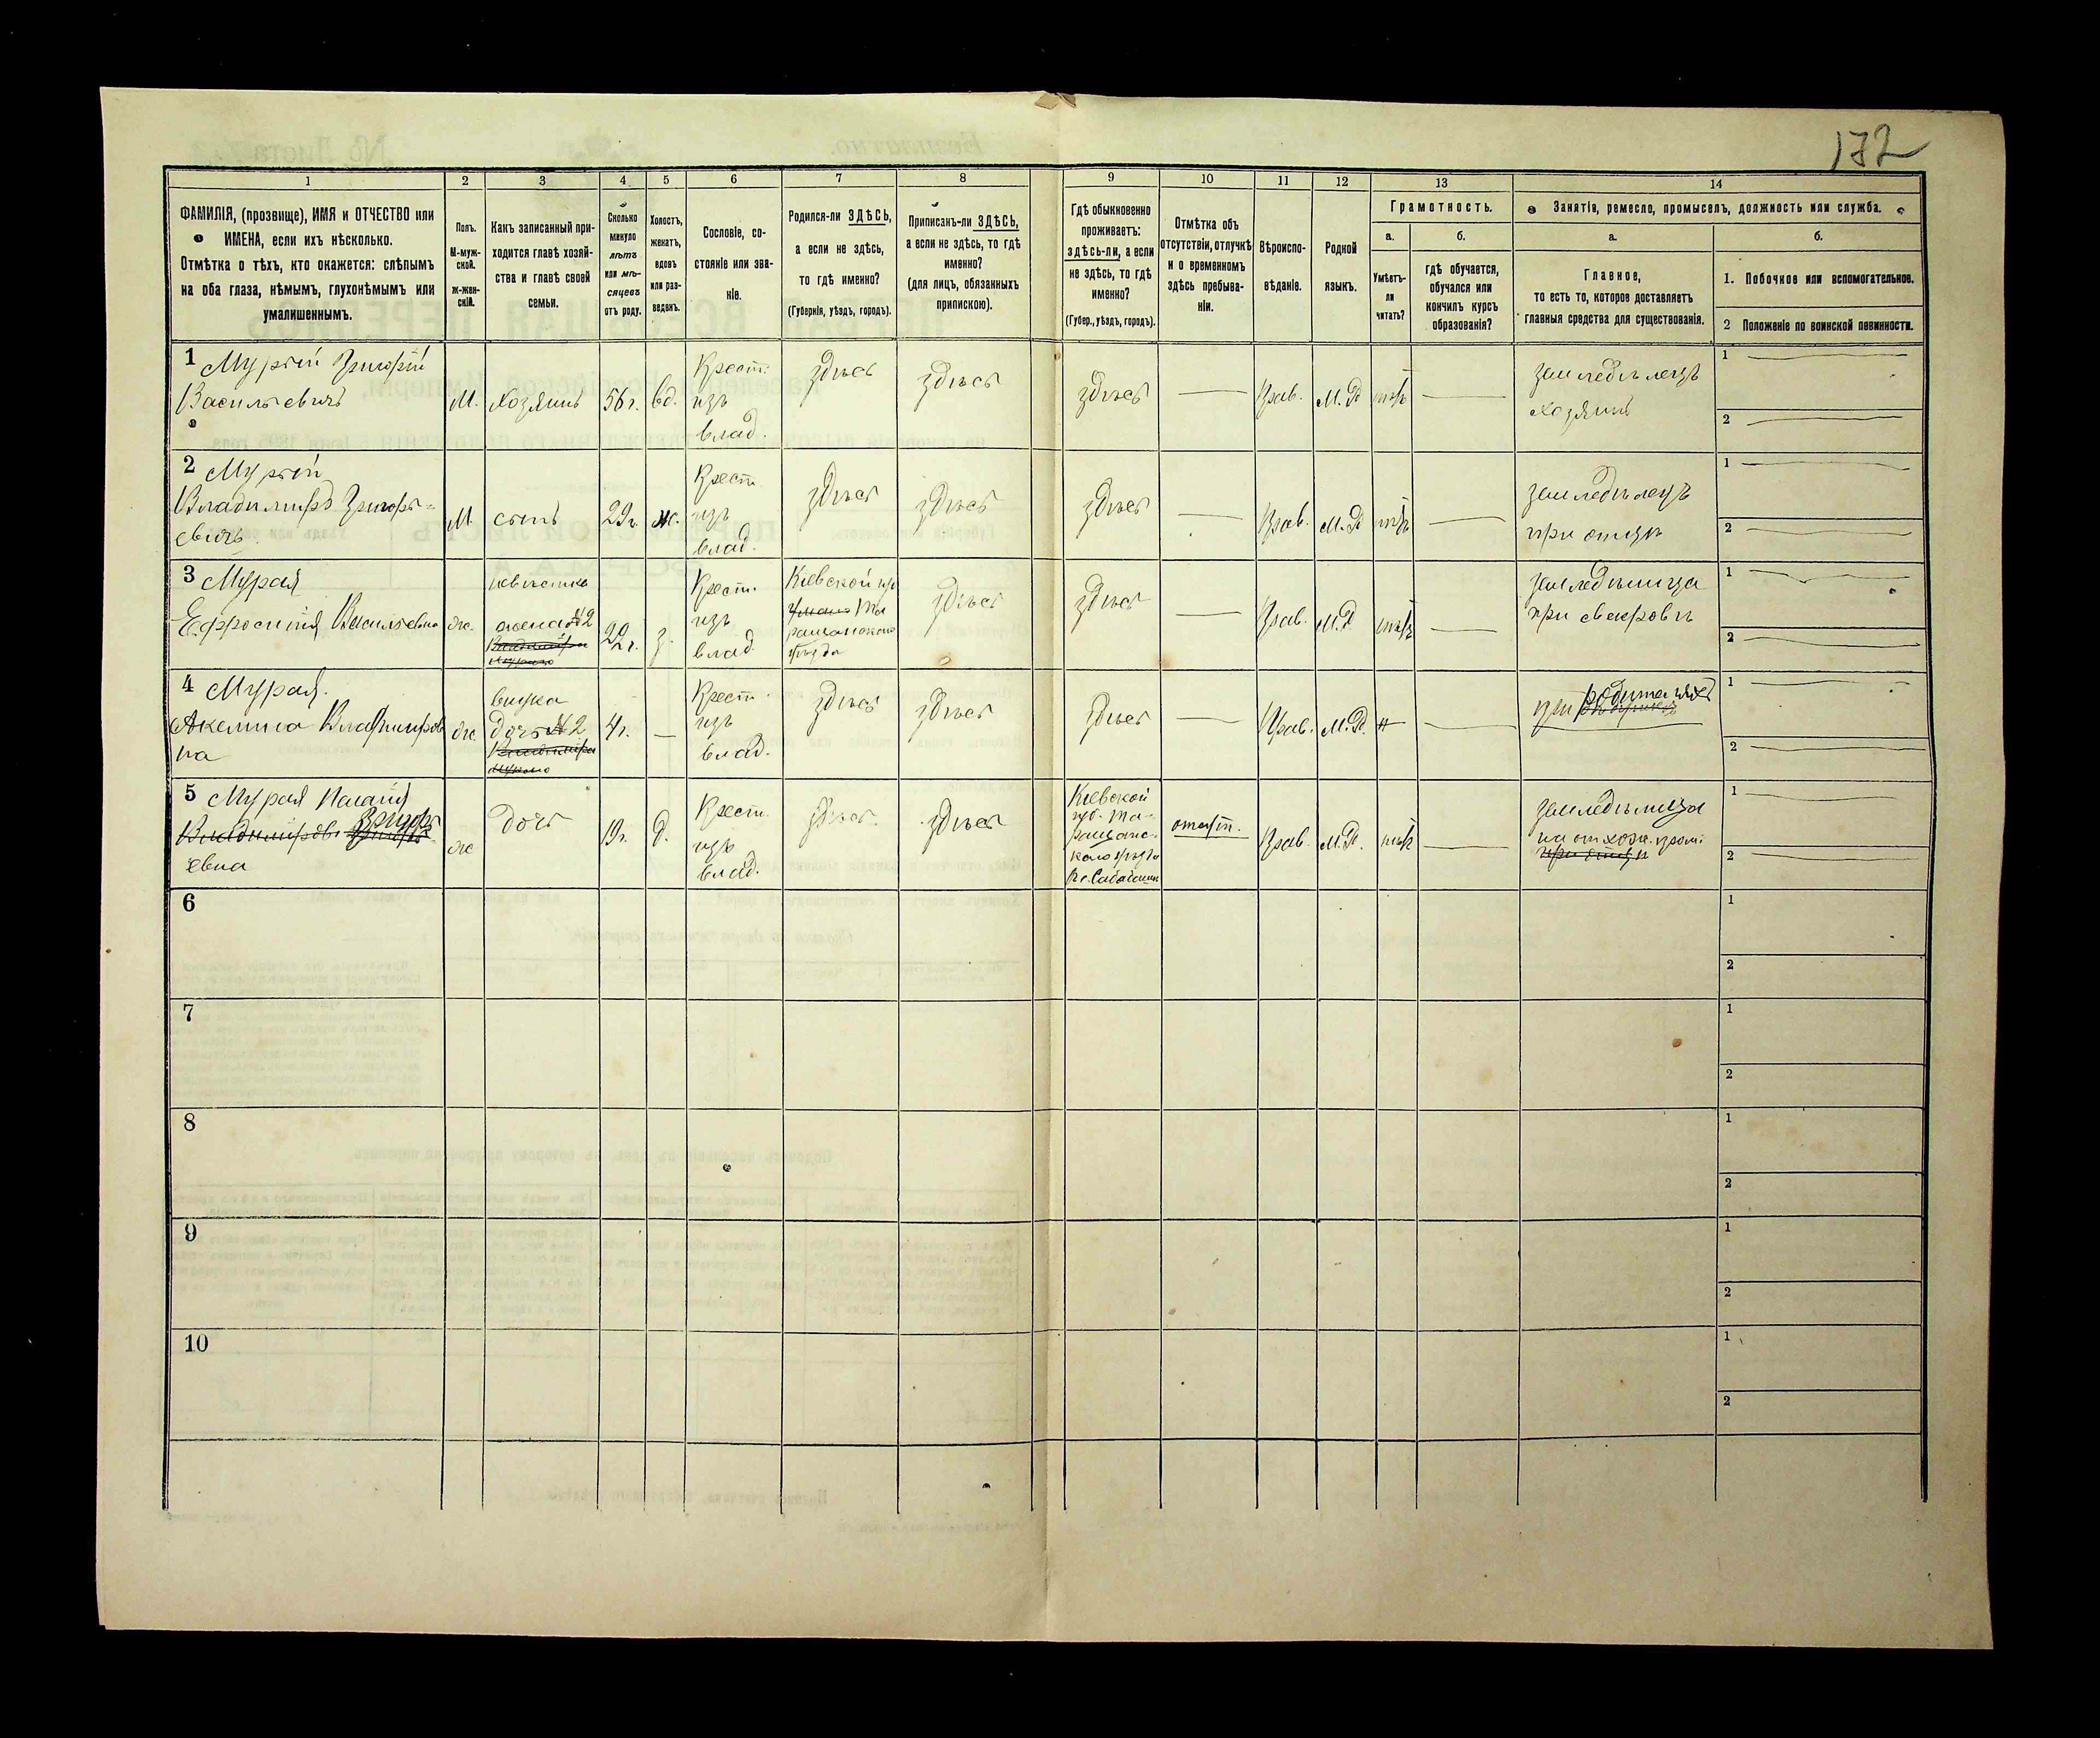 172
1
2
3
4
5
6
7
8
9
10
11
12
13
14
ФАМИЛІЯ, (прозвище), ИМЯ и ОТЧЕСТВО или
ИМЕНА, если ихъ нѣсколько.
Отмѣтка о тѣхъ, кто окажется: слѣпымъ
на оба глаза, нѣмымъ, глухонѣмымъ или
умалишеннымъ.
Полъ.
М-муж-
ской.
Ж-жен-
скій.
Какъ записанный при-
ходится главѣ хозяй-
ства и главѣ своей
семьи.
Сколько
минуло
лѣтъ
или мѣ-
сяцевъ
отъ роду.
Холостъ,
женатъ,
вдовъ
или раз-
веденъ.
Сословіе, со-
стояніе или зва-
ніе.
Родился-ли ЗДѢСЬ,
а если не здѣсь,
то гдѣ именно?
(Губернія, уѣздъ, городъ).
Приписанъ-ли ЗДѢСЬ,
а если не здѣсь, то гдѣ
именно?
(для лицъ, обязанныхъ
припискою).
Гдѣ обыкновенно
проживаетъ:
здѣсь-ли, а если
не здѣсь, то гдѣ
именно?
(Губер., уѣздъ, городъ).
Отмѣтка объ
отсутствіи, отлучкѣ
и о временномъ
здѣсь пребыва-
ніи.
Вѣроиспо-
вѣданіе.
Родной
языкъ.
Грамотность.
а.
Умѣетъ-
ли
читать?
б.
гдѣ обучается,
обучался или
кончилъ курсъ
образованія?
Занятія, ремесло, промыселъ, должность или служба.
а.
Главное,
то есть то, которое доставляетъ
главныя средства для существованія.
б.
1. Побочное или вспомогательное.
2 Положеніе по воинской повинности.
1 Мурый Григорій
Васильевичъ
М.
Хозяинъ
56 г.
вд.
Крест.
изъ
влад.
здѣсь
здѣсь
здѣсь
Прав.
М. Р.
нѣтъ
земледѣлецъ
хозяинъ
1
2
2 Мурый
Владимиръ Григорь-
евичъ
М.
сынъ
29 г.
ж.
Крест.
изъ
влад.
здѣсь
здѣсь
здѣсь
Прав.
М. Р.
нѣтъ
земледѣлецъ
при отцѣ
1
2
3 Мурая
Ефросинія Васильевна
ж.
невѣстка
жена №2
Владиміра
Мураго
22 г.
з.
Крест.
изъ
влад.
Кіевской губ
Та
ращанскаго
уѣзда
здѣсь
здѣсь
Прав.
М. Р.
нѣтъ
земледѣлица
при свекровѣ
1
2
4 Мурая
Акелина Владимиров
на
ж
внука
дочь №2
Владиміра
Мураго
4 г.
Крест.
изъ
влад.
здѣсь
здѣсь
здѣсь
Прав.
М. Р.
н
при родителяхъ
1
2
5 Мурая Палагія
Владиміров Григорь
евна
ж
дочь
19 г.
д.
Крест.
изъ
влад.
здѣсь
здѣсь
Кіевской
губ. Та-
ращанс-
каго уѣзда
отсут.
Прав.
М. Р.
нѣтъ
земледѣлица
на отхож. пром.
при отцѣ
1
2
6
1
2
7
1
2
8
1
2
9
1
2
10
1
2